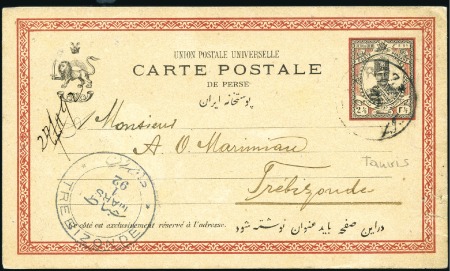 UNION POSTALE UNIVERSELLE
CARTE POSTALE
DE PERSE
پوستخانه ایران
Monsieur
A. O. Marimian
Trébizonde
Tauris
TREBIZONDE
MARS
92
Ce côté est exclusivement réservé à l'adresse.
در این صفحه باید عنوان نوشته شود